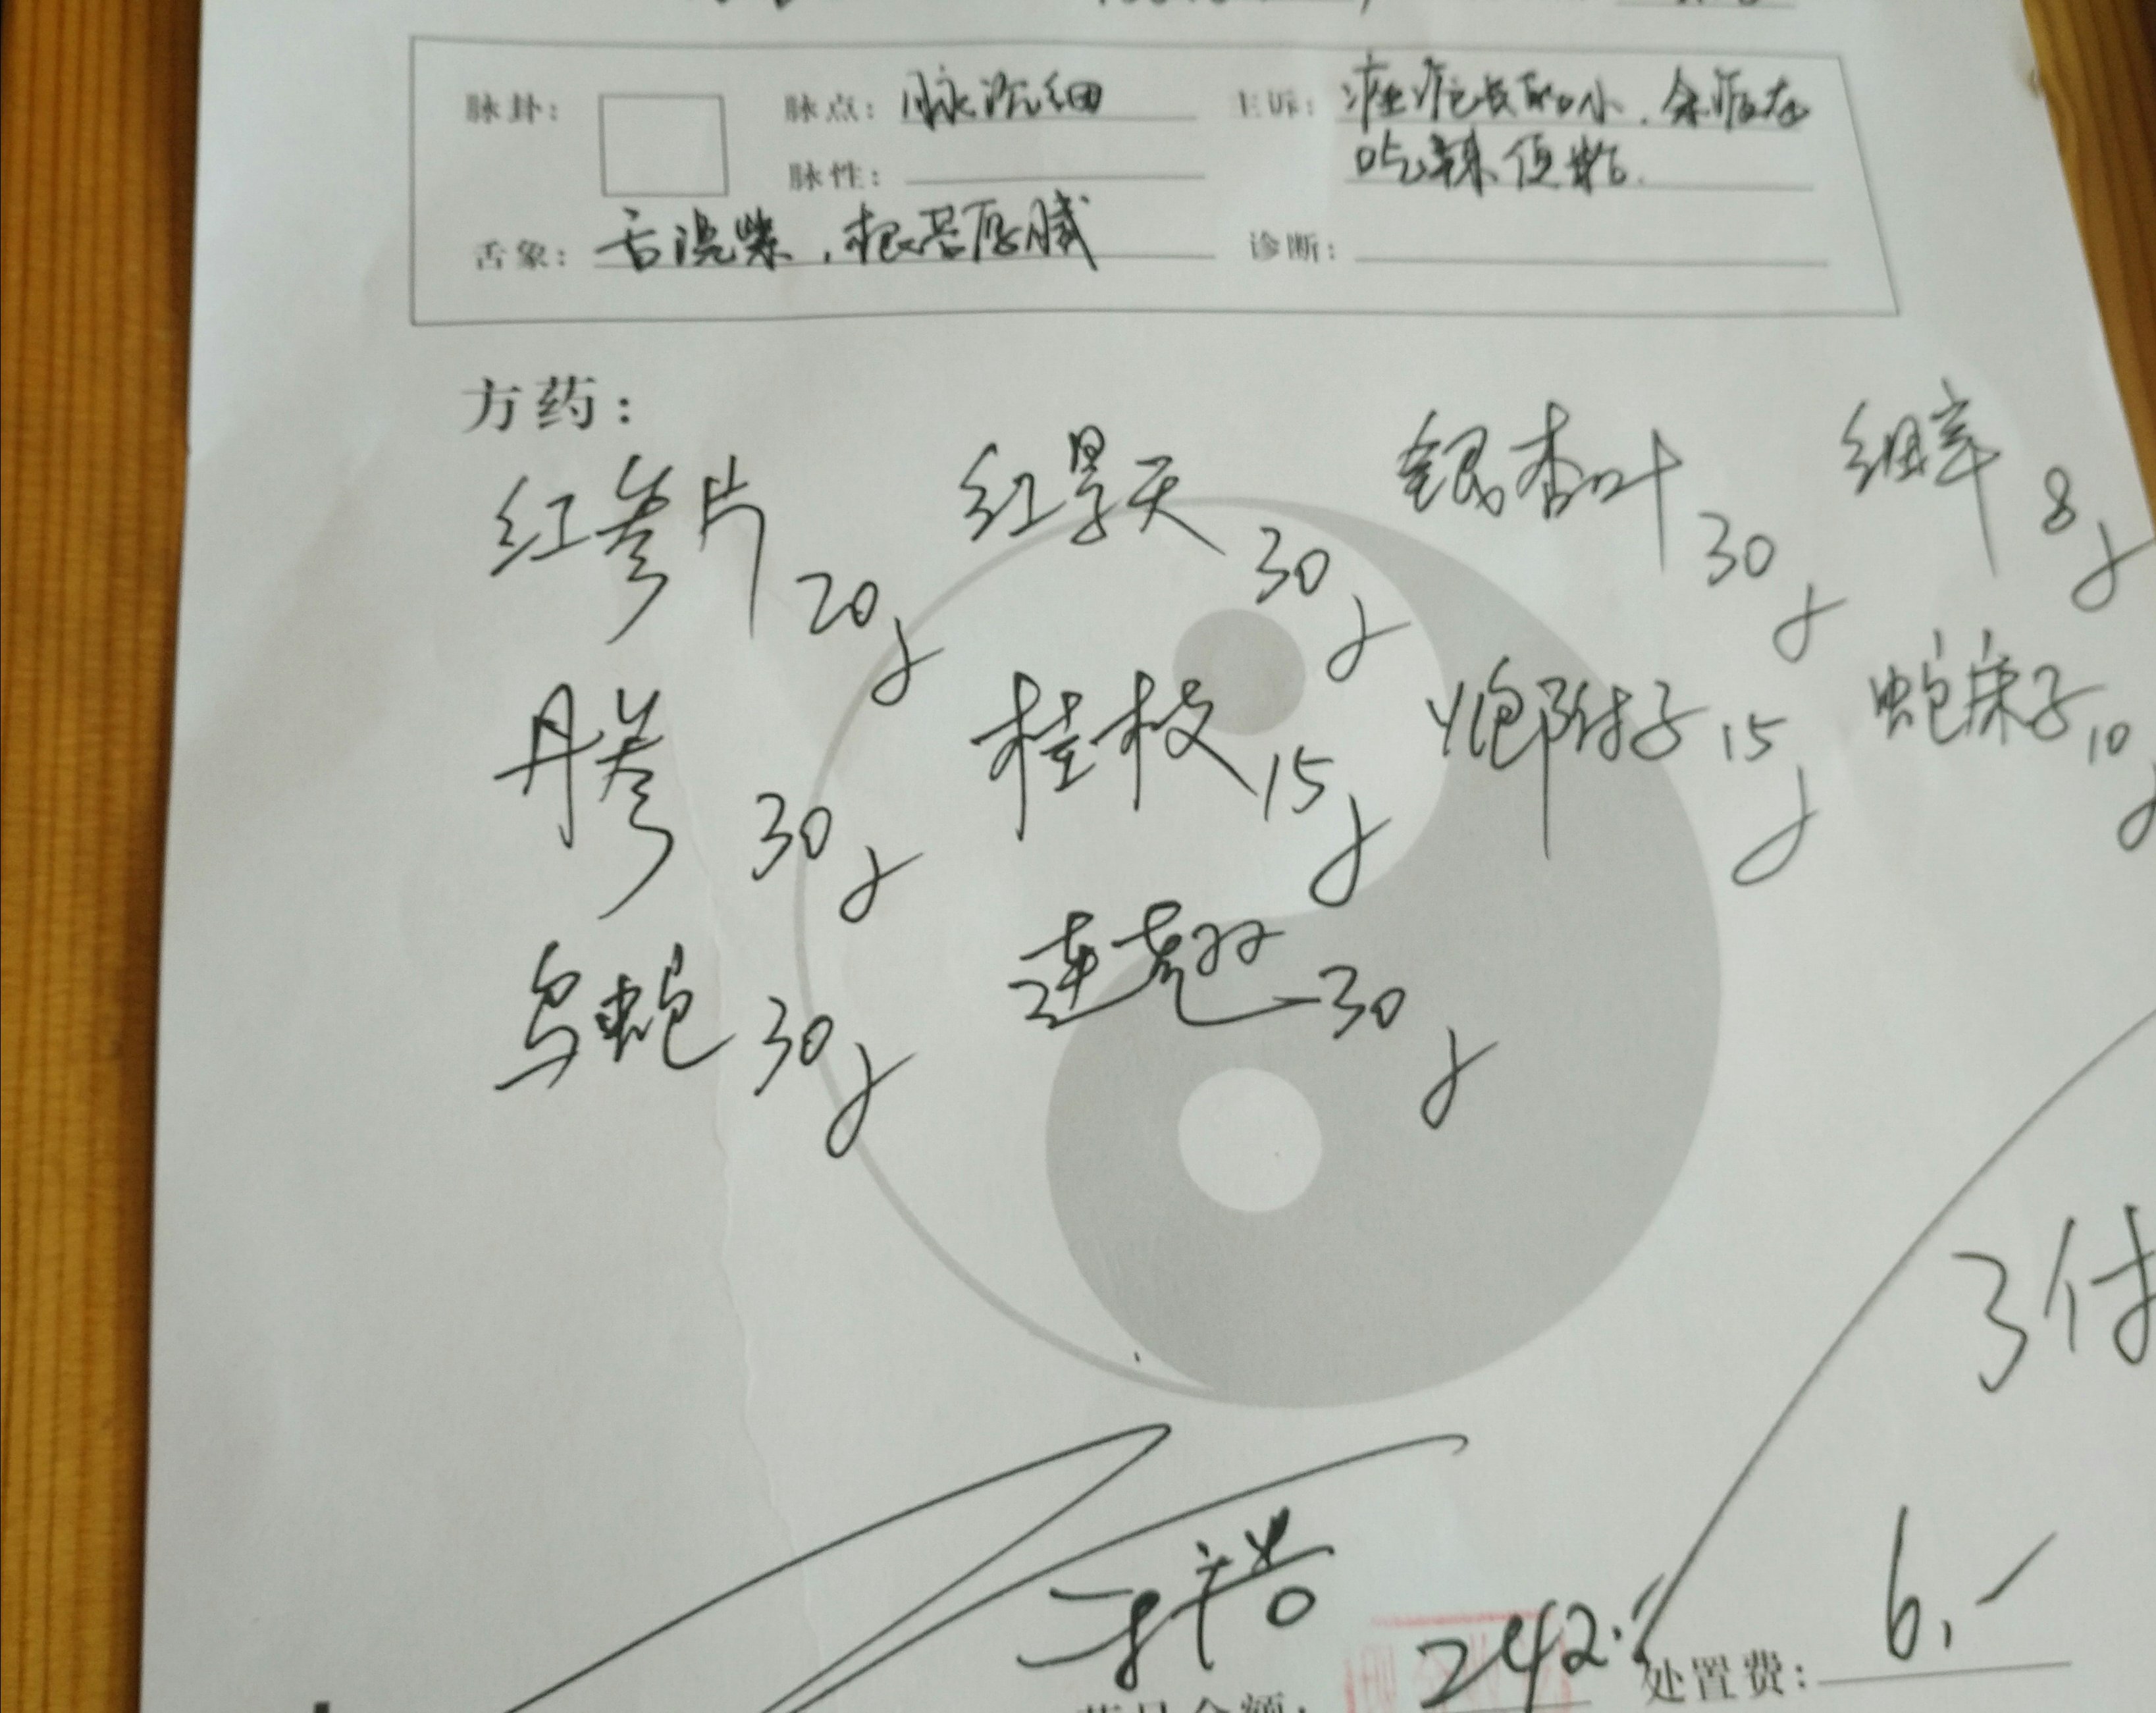 脉卦： 脉点：脉沉细 主诉：痤疮长年口小．余版在
脉性： 吃辣便粘．
舌象：舌淡紫，根苔厚腻 诊断：
方药：
红参片 20g 红景天 30g 银杏叶 30g 细辛 8g
丹参 30g 桂枝 15g 炮附子 15g 蛇床子 10g
乌蛇 30g 连翘 30g
3付
242. 处置费：6.-